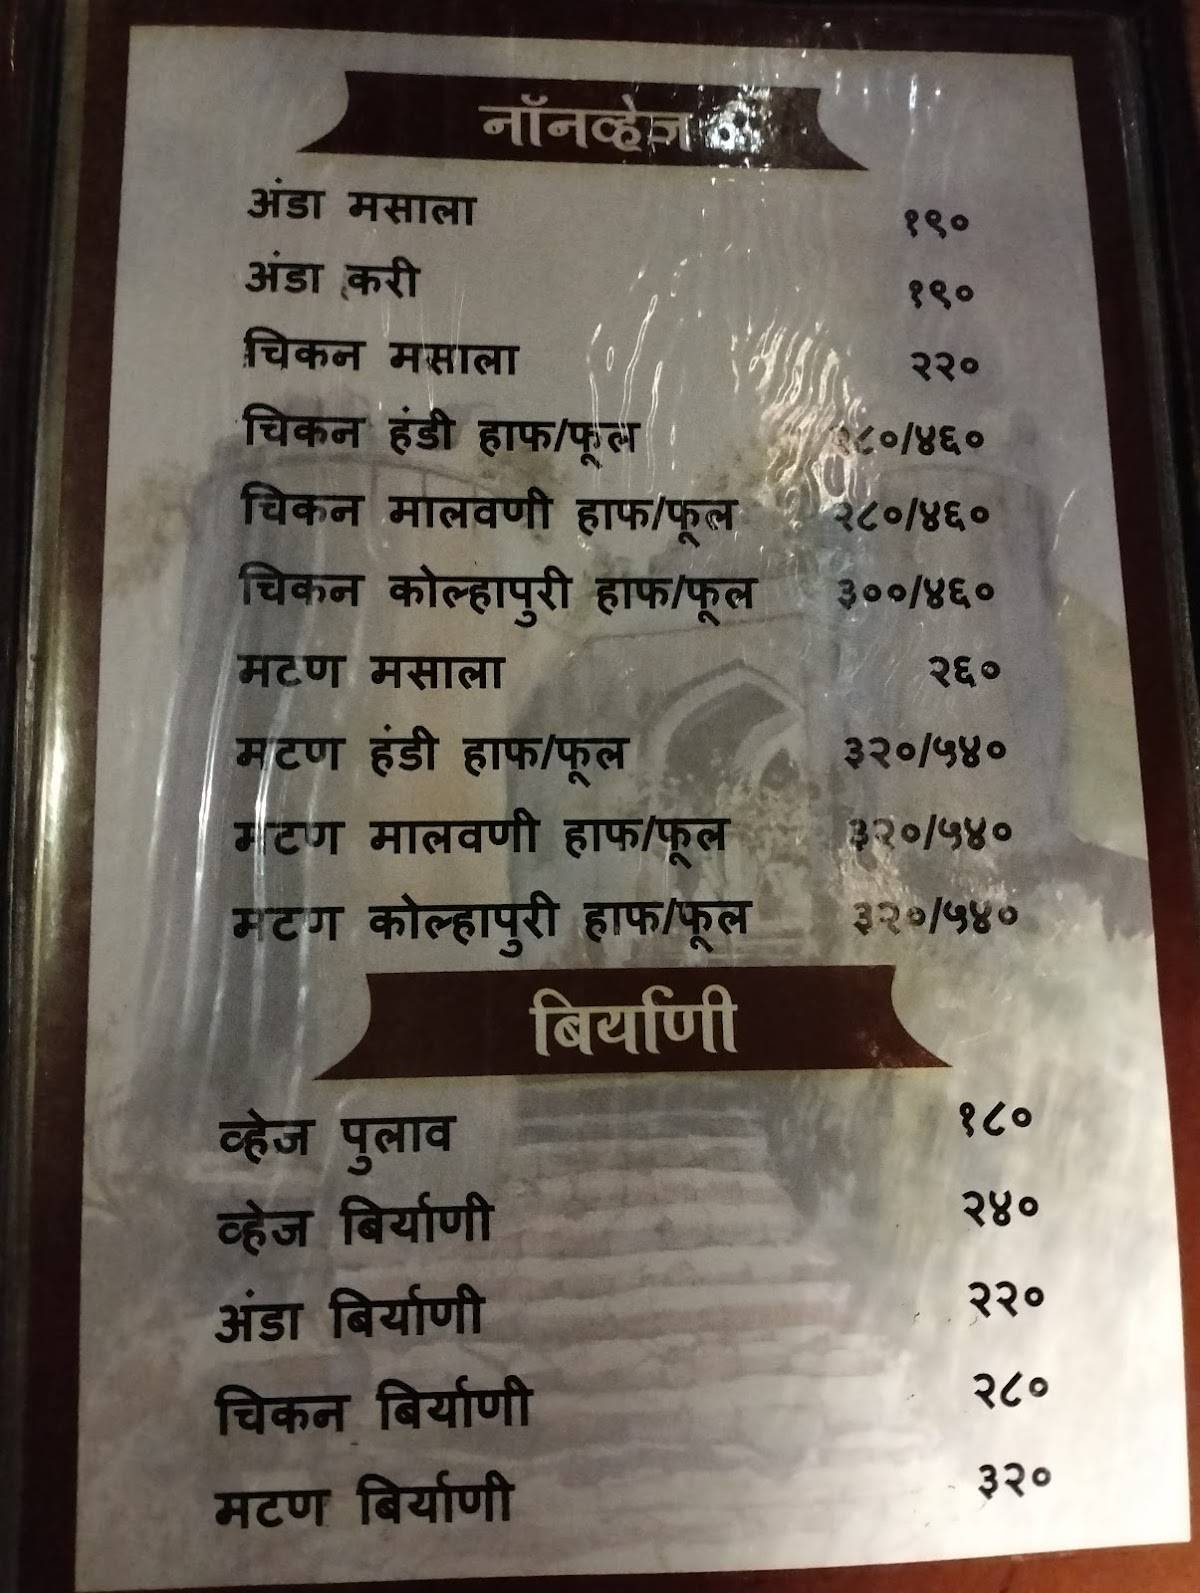 नॉनव्हेज
अंडा मसाला १९०
अंडा करी १९०
चिकन मसाला २२०
चिकन हंडी हाफ/फूल २८०/४६०
चिकन मालवणी हाफ/फूल २८०/४६०
चिकन कोल्हापुरी हाफ/फूल ३००/४६०
मटण मसाला २६०
मटण हंडी हाफ/फूल ३२०/५४०
मटण मालवणी हाफ/फूल ३२०/५४०
मटण कोल्हापुरी हाफ/फूल ३२०/५४०
बिर्याणी
व्हेज पुलाव १८०
व्हेज बिर्याणी २४०
अंडा बिर्याणी २२०
चिकन बिर्याणी २८०
मटण बिर्याणी ३२०